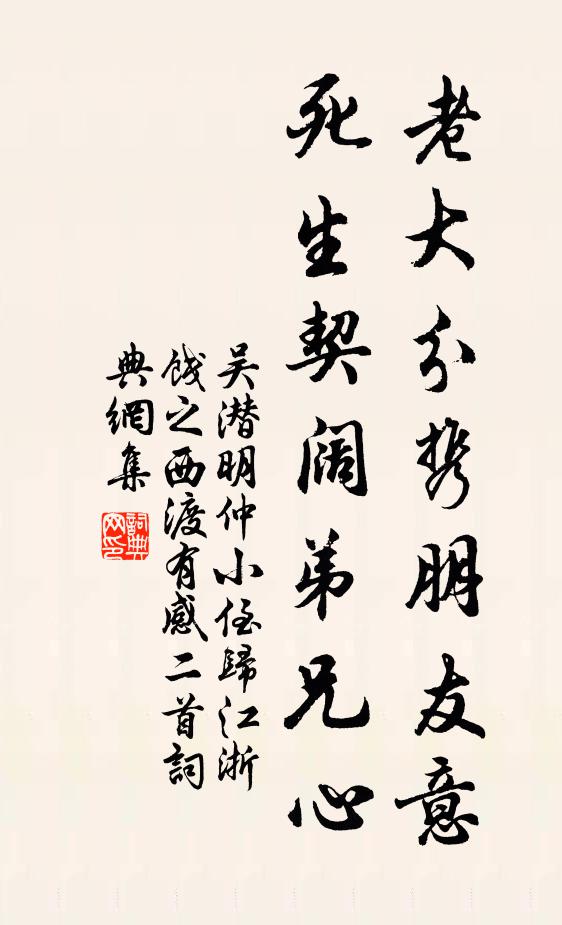 老大分携朋友意
死生契阔弟兄心
吴潜明仲小侄歸江浙
餞之西渡有感二首詞
典網集
詞典網印